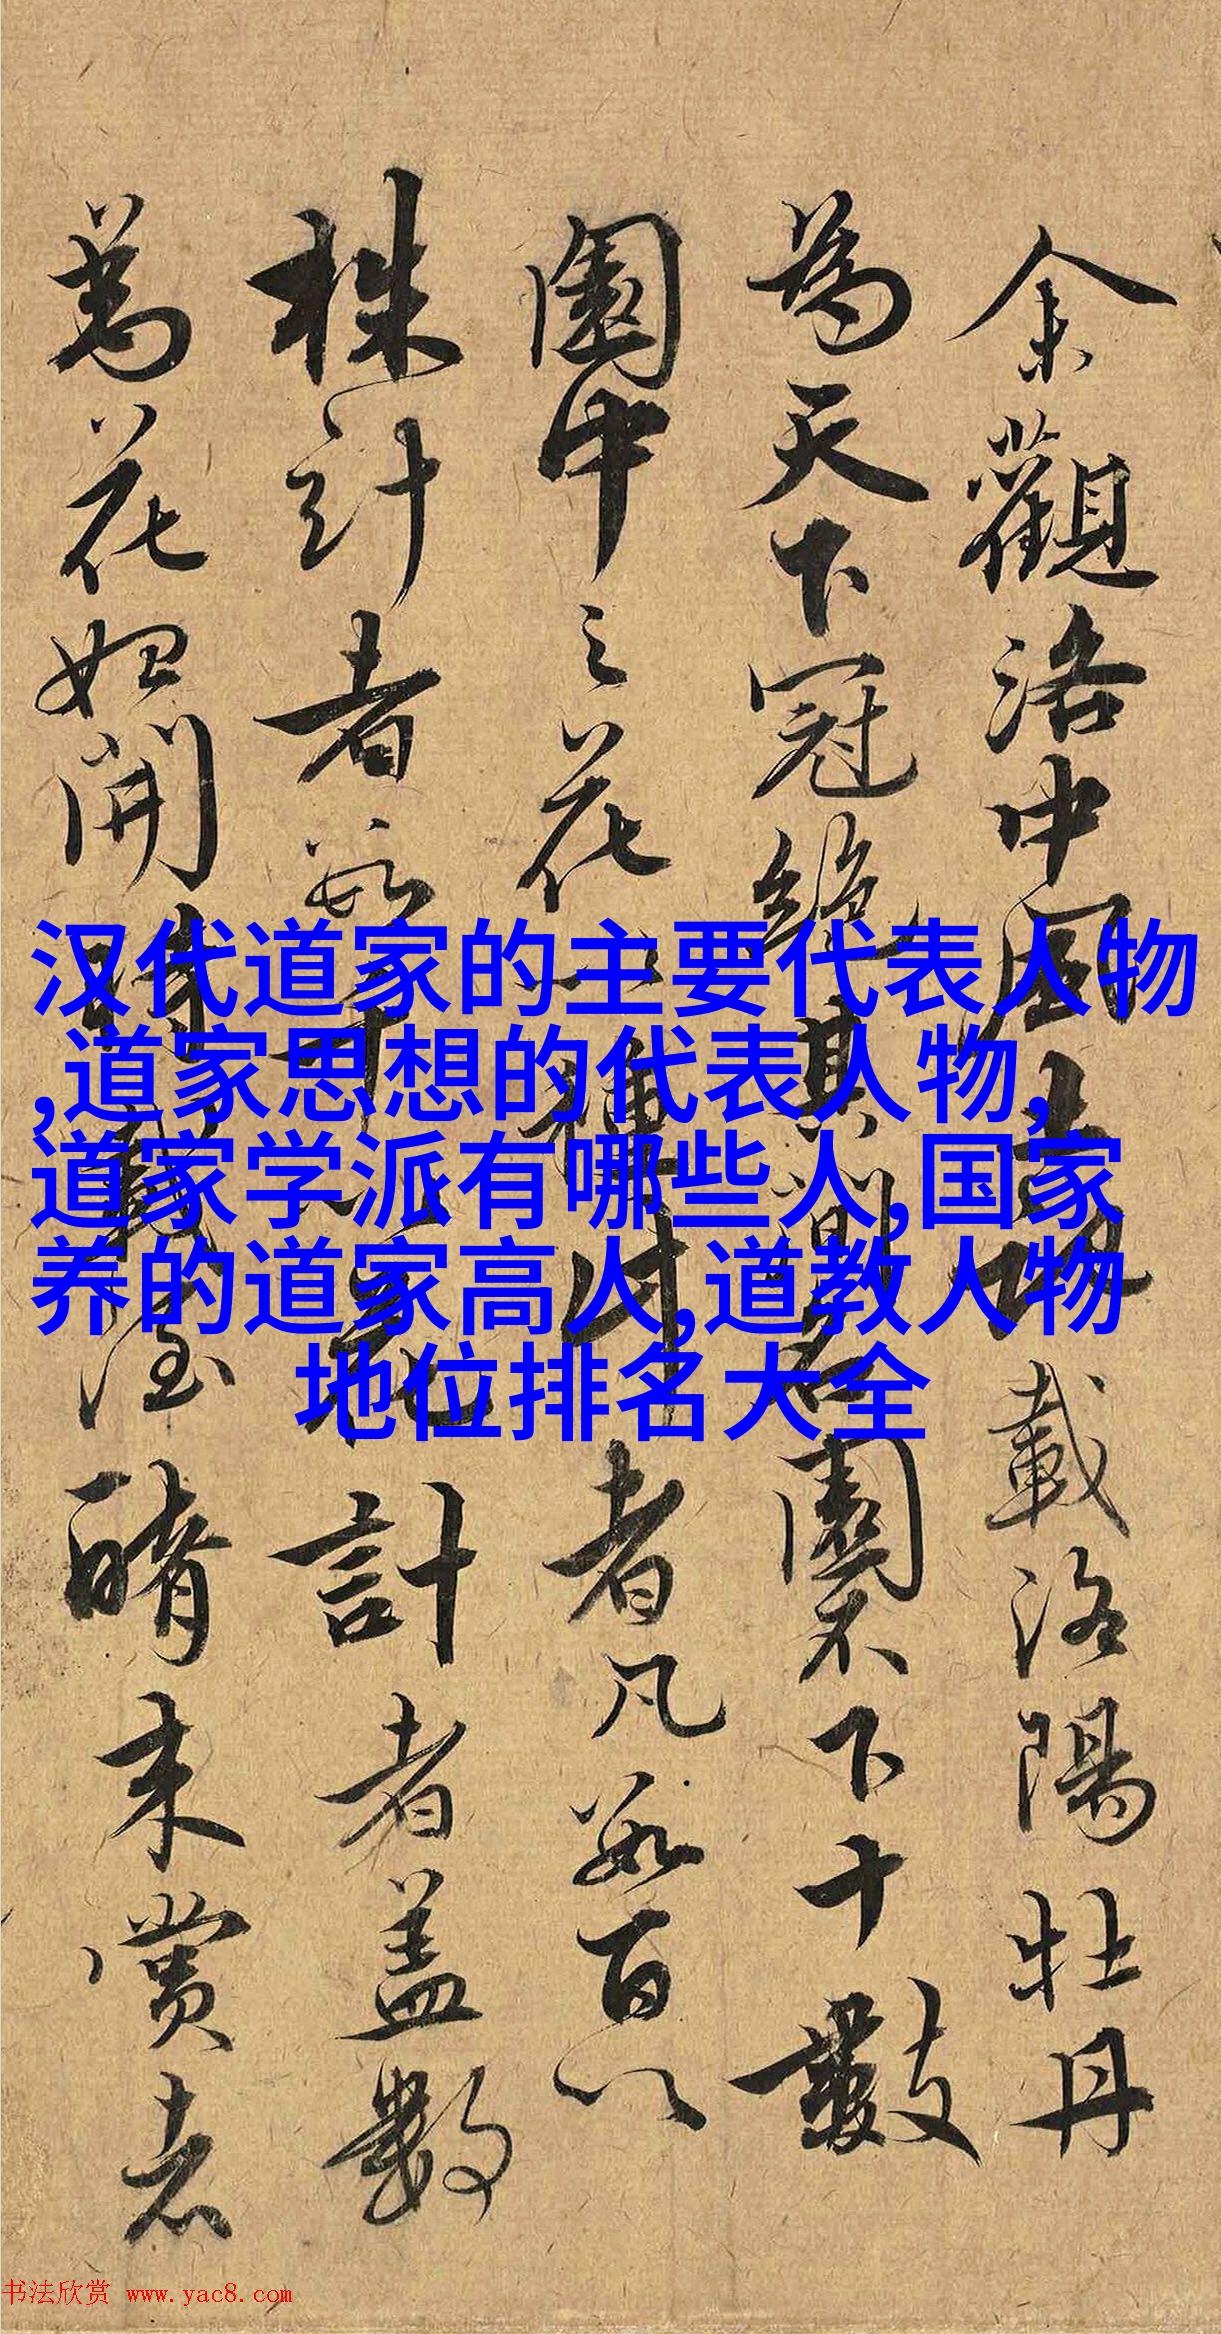 余觀洛中風土載洛陽牡丹
為天下冠絶其間名園不下十數
園中之花種計者凡數百以
株計者數千花計者蓋數
萬花始開時載來賞者
汉代道家的主要代表人物
,道家思想的代表人物,
道家学派有哪些人,国家
养的道家高人,道教人物
地位排名大全
书法欣赏 www.yac8.com